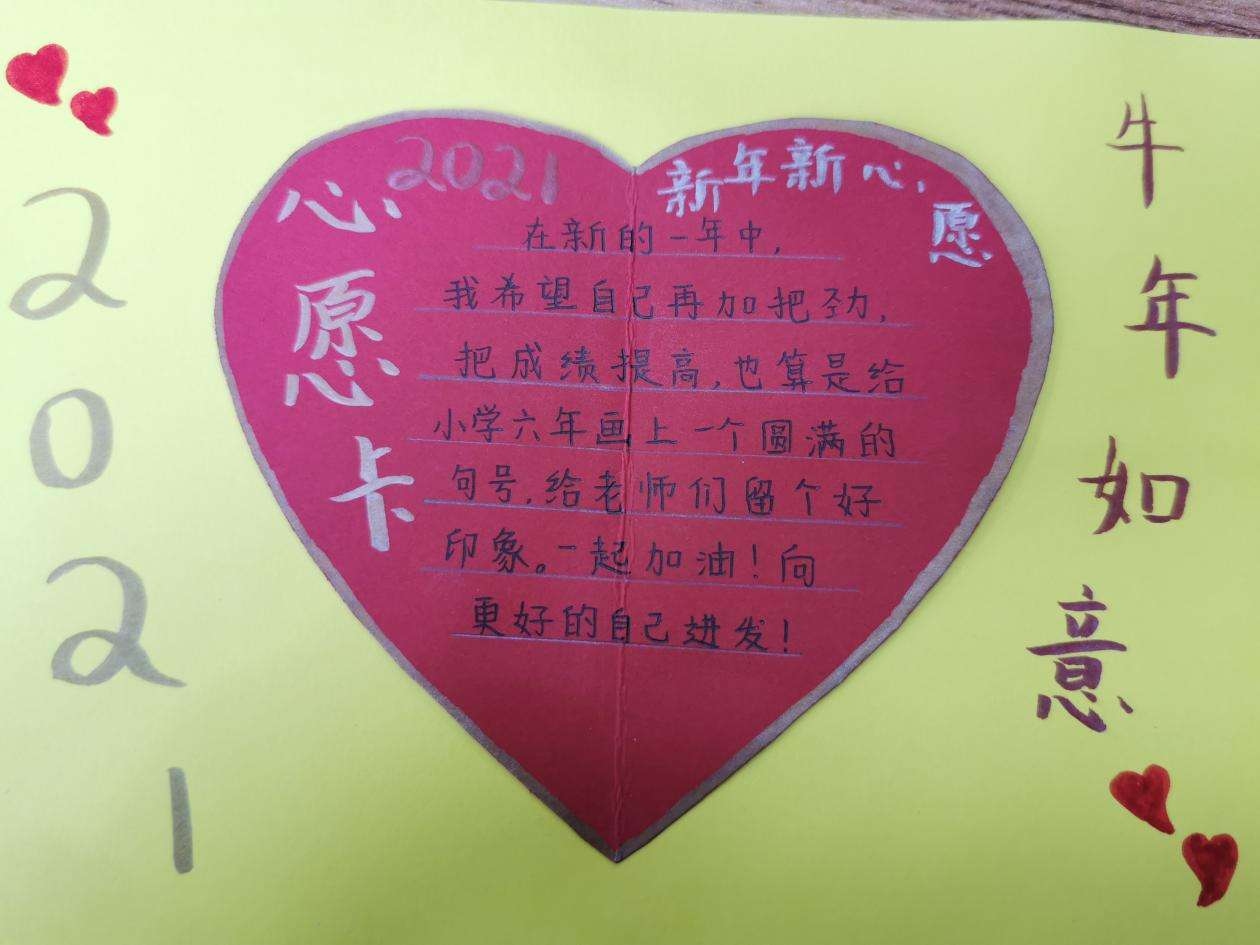 2021
心愿卡
2021
新年新心愿
在新的一年中,
我希望自己再加把劲,
把成绩提高,也算是给
小学六年画上一个圆满的
句号,给老师们留个好
印象。一起加油!向
更好的自己进发!
牛年如意